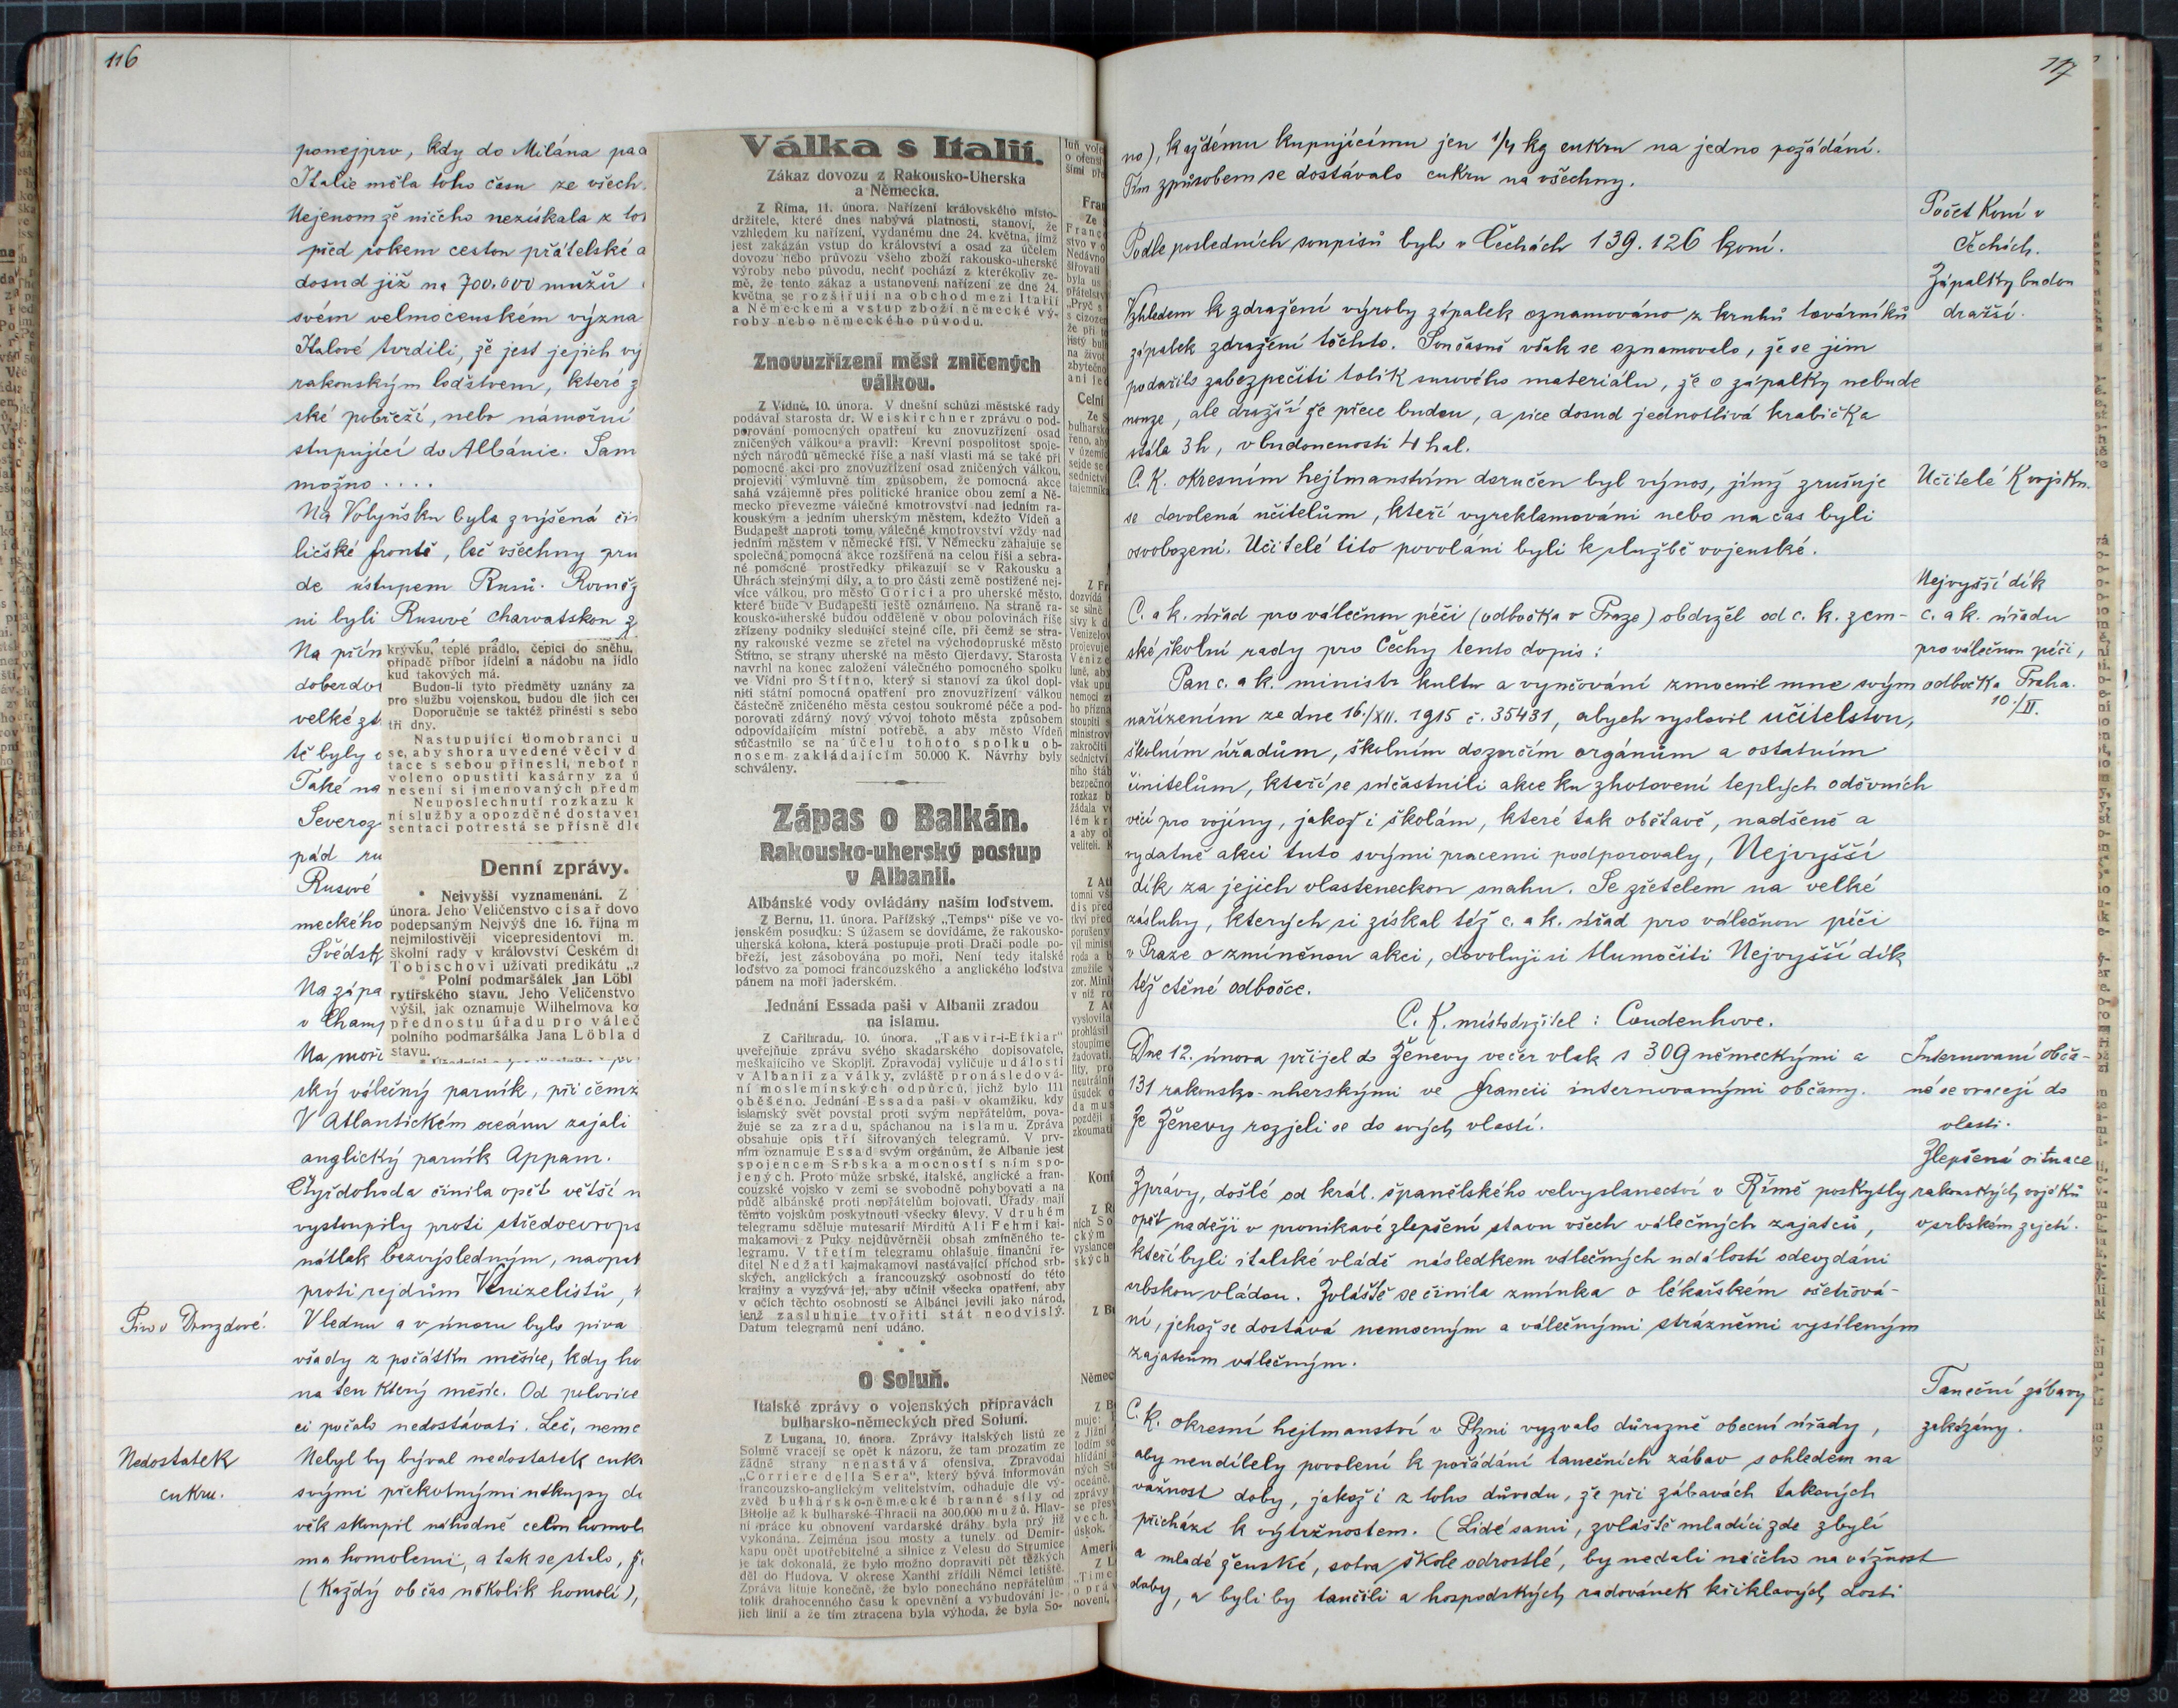 116
ponejprv, kdy do Milána pa
Italie měla toho času ze všech
Nejenom že ničeho nezískala z
před rokem cestou přátelské
dosud již na 700.000 mužů
svém velmocenském význa
Italové tvrdili, že jest jejich
rakouským loďstvem, které
ské pobřeží, nebo námořní
stupující do Albánie. Sam
možno ....
Na Volyňsku byla zvýšená či
ličské frontě, leč všechny pru
de ústupem Rusů. Rovněž
ni byli Rusové charvatskou
Na přím
doberdo
velké
tě byly
Také na
Severoz
pád ru
Rusové
meckého
Švédsk
Na zápa
v Champ
Na moři
ský válečný parník, při čemž
V Atlantickém oceánu zajali
anglický parník Appam.
Čtyřdohoda činila opět větší n
vystoupily proti středoevrops
nátlak bezvýsledným, naopak
proti rejdům Venizelistů,
Pivo v Druzdové.
V lednu a v únoru bylo piva
všady z počátku měsíce, kdy ho
na ten který měsíc. Od polovice
ci počalo nedostávati. Leč, neme
Nedostatek
cukru.
Nebyl by býval nedostatek cuk
svými překotnými nákupy
věk skoupil náhodně celou homol
ma homolemi, a tak se stalo, že
(Každý občas několik homolí),
krývku, teplé prádlo, čepici do sněhu,
případě příbor jídelní a nádobu na jídlo
kud takových má.
Budou-li tyto předměty uznány za
pro službu vojenskou, budou dle jich
Doporučuje se taktéž přinésti s sebo
tři dny.
Nastupující domobranci
se, aby shora uvedené věci v
tace s sebou přinesli, neboť
voleno opustiti kasárny za
nesení si jmenovaných předm
Neuposlechnutí rozkazu k
ní služby a opozděné dostave
sentaci potrestá se přísně dle
Denní zprávy.
* Nejvyšší vyznamenání. Z
února. Jeho Veličenstvo císař dovo
podepsaným Nejvýš dne 16. října
nejmilostivěji vicepresidentovi m.
školní rady v království Českém
Tobischovi užívati predikátu
Polní podmaršálek Jan Löbl
rytířského stavu. Jeho Veličenstvo
výšil, jak oznamuje Wilhelmova
přednostu úřadu pro váleč
polního podmaršálka Jana Löbla
stavu.
Válka s Italií.
Zákaz dovozu z Rakousko-Uherska
a Německa.
Z Říma, 11. února. Nařízení královského místo-
držitele, které dnes nabývá platnosti, stanoví, že
vzhledem ku nařízení, vydanému dne 24. května, jímž
jest zakázán vstup do království a osad za účelem
dovozu nebo průvozu všeho zboží rakousko-uherské
výroby nebo původu, nechť pochází z kterékoliv ze-
mě, že tento zákaz a ustanovení nařízení ze dne 24.
května se rozšiřují na obchod mezi Italií
a Německem a vstup zboží německé vý-
roby nebo německého původu.
Znovuzřízení měst zničených
válkou.
Z Vídně, 10. února. V dnešní schůzi městské rady
podával starosta dr. Weiskirchner zprávu o pod-
porování pomocných opatření ku znovuzřízení osad
zničených válkou a pravil: Krevní pospolitost spoje-
ných národů německé říše a naší vlasti má se také při
pomocné akci pro znovuzřízení osad zničených válkou,
projeviti výmluvně tím způsobem, že pomocná akce
sahá vzájemně přes politické hranice obou zemí a Ně-
mecko převezme válečné kmotrovství nad jedním ra-
kouským a jedním uherským městem, kdežto Vídeň a
Budapešť naproti tomu válečné kmotrovství vždy nad
jedním městem v německé říši. V Německu zahajuje se
společná pomocná akce rozšířená na celou říši a sebra-
né pomocné prostředky přikazují se v Rakousku a
Uhrách stejnými díly, a to pro části země postižené nej-
více válkou, pro město Gorici a pro uherské město,
které bude v Budapešti ještě oznámeno. Na straně ra-
kousko-uherské budou odděleně v obou polovinách říše
zřízeny podniky sledující stejné cíle, při čemž se stra-
ny rakouské vezme se zřetel na východopruské město
Štítno, se strany uherské na město Gierdavy. Starosta
navrhl na konec založení válečného pomocného spolku
ve Vídni pro Štítno, který si stanoví za úkol dopl-
niti státní pomocná opatření pro znovuzřízení válkou
částečně zničeného města cestou soukromé péče a pod-
porovati zdárný nový vývoj tohoto města způsobem
odpovídajícím místní potřebě, a aby město Vídeň
súčastnilo se na účelu tohoto spolku ob-
nosem zakládajícím 50.000 K. Návrhy byly
schváleny.
Zápas o Balkán.
Rakousko-uherský postup
v Albanii.
Albánské vody ovládány naším loďstvem.
Z Bernu, 11. února. Pařížský „Temps“ píše ve vo-
jenském posudku: S úžasem se dovídáme, že rakousko-
uherská kolona, která postupuje proti Drači podle po-
břeží, jest zásobována po moři. Není tedy italské
loďstvo za pomoci francouzského a anglického loďstva
pánem na moři jaderském.
Jednání Essada paši v Albanii zradou
na islamu.
Z Cařihradu, 10. února. „Tasvir-i-Efkiar“
uveřejňuje zprávu svého skadarského dopisovatele,
meškajícího ve Skoplji. Zpravodaj vyličuje události
v Albanii za války, zvláště pronásledová-
ní moslemínských odpůrců, jichž bylo 111
oběšeno. Jednání Essada paši v okamžiku, kdy
islamský svět povstal proti svým nepřátelům, pova-
žuje se za zradu, spáchanou na islamu. Zpráva
obsahuje opis tří šifrovaných telegramů. V prv-
ním oznamuje Essad svým orgánům, že Albanie jest
spojencem Srbska a mocností s ním spo-
jených. Proto může srbské, italské, anglické a fran-
couzské vojsko v zemi se svobodně pohybovati a na
půdě albánské proti nepřátelům bojovati. Úřady mají
těmto vojskům poskytnouti všecky úlevy. V druhém
telegramu sděluje mutesarif Mirditů Ali Fehmi kaj-
makamovi z Puky nejdůvěrněji obsah zmíněného te-
legramu. V třetím telegramu ohlašuje finanční ře-
ditel Nedžati kajmakamovi nastávající příchod srb-
ských, anglických a francouzský osobností do této
krajiny a vyzývá jej, aby učinil všecka opatření, aby
v očích těchto osobností se Albánci jevili jako národ,
jenž zasluhuje tvořiti stát neodvislý.
Datum telegramů není udáno.
* * *
O Soluň.
Italské zprávy o vojenských přípravách
bulharsko-německých před Soluní.
Z Lugana, 10. února. Zprávy italských listů ze
Soluně vracejí se opět k názoru, že tam prozatím ze
žádné strany nenastává ofensiva. Zpravodaj
„Corriere della Sera“, který bývá informován
francouzsko-anglickým velitelstvím, odhaduje dle vý-
zvěd bulharsko-německé branné síly od
Bitolje až k bulharské Thracii na 300.000 mužů. Hlav-
ní práce ku obnovení vardarské dráhy byla prý již
vykonána. Zejména jsou mosty a tunely od Demir-
kapu opět upotřebitelné a silnice z Velesu do Strumice
je tak dokonalá, že bylo možno dopraviti pět těžkých
děl do Hudova. V okrese Xanthi zřídili Němci letiště.
Zpráva lituje konečně, že bylo ponecháno nepřátelům
tolik drahocenného času k opevnění a vybudování je-
jich linií a že tím ztracena byla výhoda, že byla So-
117
no), každému kupujícímu jen 1/4 kg cukru na jedno požádání.
Tím způsobem se dostávalo cukru na všechny.
Počet koní v
Čechách.
Podle posledních soupisů bylo v Čechách 139.126 koní.
Zápalky budou
dražší.
Vzhledem k zdražení výroby zápalek oznamováno z kruhů továrníků
zápalek zdražení těchto. Současně však se oznamovalo, že se jim
podařilo zabezpečiti tolik surového materiálu, že o zápalky nebude
nouze, ale dražší že přece budou, a sice dosud jednotlivá krabička
stála 3h, v budoucnosti 4 hal.
Učitelé k vojsku.
C. K. okresním hejtmanstvím doručen byl výnos, jímž zrušuje
se dovolená učitelům, kteří vyreklamováni nebo na čas byli
osvobozeni. Učitelé tito povoláni byli k službě vojenské.
Nejvyšší dík
c. a k. úřadu
pro válečnou péči,
odbočka Praha.
10./II.
C. a k. úřad pro válečnou péči (odbočka v Praze) obdržel od c. k. zem-
ské školní rady pro Čechy tento dopis:
Pan c. a k. ministr kultu a vyučování zmocnil mne svým
nařízením ze dne 16./XII. 1915 č. 35431, abych vyslovil učitelstvu,
školním úřadům, školním dozorčím orgánům a ostatním
činitelům, kteří se súčastnili akce ku zhotovení teplých oděvních
věcí pro vojíny, jakož i školám, které tak obětavě, nadšeně a
vydatně akci tuto svými pracemi podporovaly, Nejvyšší
dík za jejich vlasteneckou snahu. Se zřetelem na velké
zásluhy, kterých si získal též c. a k. úřad pro válečnou péči
v Praze o zmíněnou akci, dovoluji si tlumočiti Nejvyšší dík
též ctěné odbočce.
C. K. místodržitel: Coudenhove.
Internovaní obča-
né se vracejí do
vlasti.
Dne 12. února přijel do Ženevy večer vlak s 309 německými a
131 rakousko-uherskými ve Francii internovanými občany.
Ze Ženevy rozjeli se do svých vlastí.
Zlepšená situace
rakouských vojáků
v srbském zajetí.
Zprávy, došlé od král. španělského velvyslanectví v Římě poskytly
opět naději v pronikavé zlepšení stavu všech válečných zajatců,
kteří byli italské vládě následkem válečných událostí odevzdáni
srbskou vládou. Zvláště se činila zmínka o lékařském ošetřová-
ní, jehož se dostává nemocným a válečnými strázněmi vysíleným
zajatcům válečným.
Taneční zábavy
zakázány.
C. k. okresní hejtmanství v Plzni vyzvalo důrazně obecní úřady,
aby neudílely povolení k pořádání tanečních zábav s ohledem na
vážnost doby, jakož i z toho důvodu, že při zábavách takových
přichází k výtržnostem. (Lidé sami, zvláště mladíci zde zbylí
a mladé ženské, sotva škole odrostlé, by nedali ničeho na vážnost
doby, a byli by tančili a hospodských radovánek křiklavých dosti